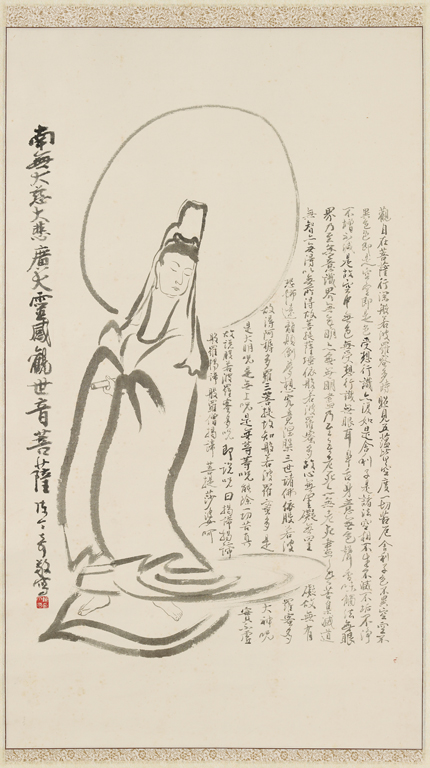 觀自在菩薩行深般若波羅蜜多時照見五蘊皆空度一切苦厄舍利子色不異空空不
異色色即是空空即是色受想行識亦復如是舍利子是諸法空相不生不滅不垢不淨
不增不減是故空中無色無受想行識無眼耳鼻舌身意無色聲香味觸法無眼
界乃至無意識界無無明亦無無明盡乃至無老死亦無老死盡無苦集滅道
無智亦無得以無所得故菩提薩埵依般若波羅蜜多故心無罣礙無罣礙故無有
恐怖遠離顛倒夢想究竟涅槃三世諸佛依般若波羅蜜多
故得阿耨多羅三菩提故知般若波羅蜜多是大神呪
是大明呪是無上呪是無等等呪能除一切苦真實不虛
故說般若波羅蜜多呪即說呪曰揭諦揭諦
般羅揭諦般羅僧揭諦菩提莎婆訶
南無大慈大悲廣大靈感觀世音菩薩
敬寫